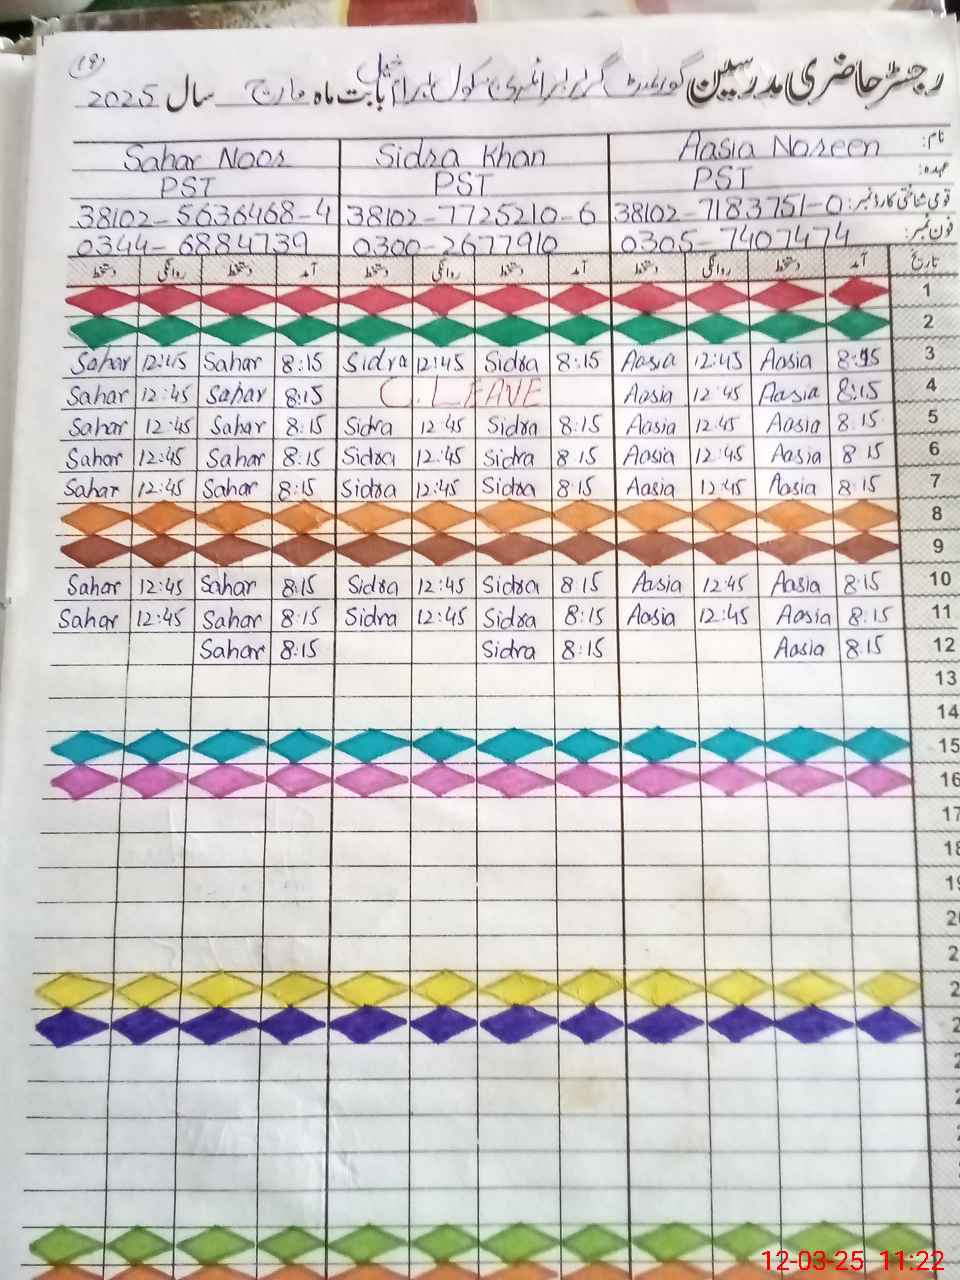 (19)
رجسٹر حاضری مدرسین گورنمنٹ گرلز پرائمری سکول بابت ماہ مارچ سال 2025
نام: Aasia Noreen Sidra Khan Sahar Noor
عہدہ: PST PST PST
قومی شناختی کارڈ نمبر: 38102-7183751-0 38102-7725210-6 38102-5636468-4
فون نمبر: 0305-7407474 0300-2677910 0344-6884739
تاریخ آمد دستخط روانگی دستخط آمد دستخط روانگی دستخط آمد دستخط روانگی دستخط
1
2
Sahar 12:45 Sahar 8:15 Sidra 12:45 Sidra 8:15 Aasia 12:45 Aasia 8:15 3
Sahar 12:45 Sahar 8:15 C.LEAVE Aasia 12:45 Aasia 8:15 4
Sahar 12:45 Sahar 8:15 Sidra 12:45 Sidra 8:15 Aasia 12:45 Aasia 8:15 5
Sahar 12:45 Sahar 8:15 Sidra 12:45 Sidra 8:15 Aasia 12:45 Aasia 8:15 6
Sahar 12:45 Sahar 8:15 Sidra 12:45 Sidra 8:15 Aasia 12:45 Aasia 8:15 7
8
9
Sahar 12:45 Sahar 8:15 Sidra 12:45 Sidra 8:15 Aasia 12:45 Aasia 8:15 10
Sahar 12:45 Sahar 8:15 Sidra 12:45 Sidra 8:15 Aasia 12:45 Aasia 8:15 11
Sahar 8:15 Sidra 8:15 Aasia 8:15 12
13
14
15
16
17
18
19
2
2
2
2
2
2
12-03-25 11:22